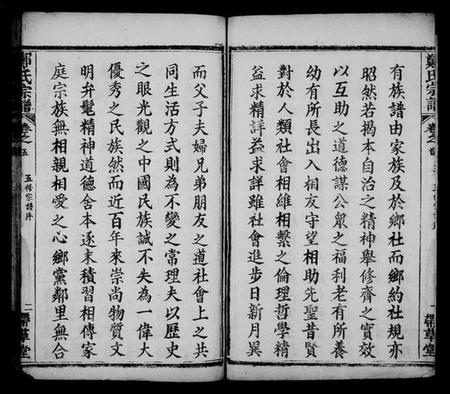 鄭氏宗譜
卷之首
有族譜由家族及於鄉社而鄉約社規亦
昭然若揭本自治之精神舉修齊之實效
以互助之道德謀公衆之福利老有所養
幼有所長出入相友守望相助先聖昔賢
對於人類社會相維相繫之倫理哲學精
益求精詳益求詳雖社會進步日新月異
帶草堂
而父子夫婦兄弟朋友之道社會上之共
同生活方式則為不變之常理夫以歷史
之眼光觀之中國民族誠不失為一偉大
優秀之民族然而近百年來崇尚物質文
明弁髦精神道德舍本逐末積習相傳家
庭宗族無相親相愛之心鄉黨鄰里無合
鄭氏宗譜
卷之
五
五修宗譜序
二
帶草堂